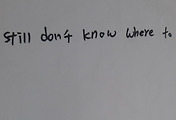 still don't know where to